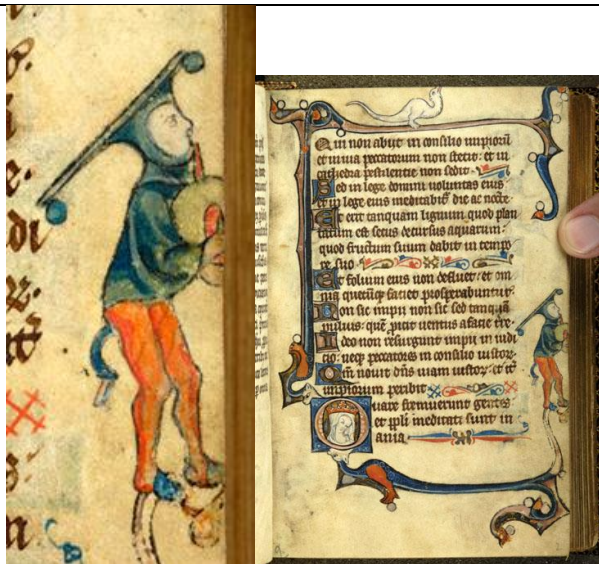 Qui non abiit in consilio impiorū
et in uia peccatorum non stetit· et in
cathedra pestilentie non sedit·
Sed in lege domini uoluntas eius
et in lege eius meditabit᷑ die ac nocte·
Et erit tanquam lignum quod plan
tatum est secus decursus aquarum·
quod fructum suum dabit in tempo
re suo·
Et folium eius non defluet· et om
nia quecūq; faciet prosperabuntur·
Non sic impii non sic sed tanquā
puluis· quē ꝓicit uentus a facie t̄re·
Ideo non resurgunt impii in iudi
cio· neq; peccatores in consilio iustoꝝ·
Qm̄ nouit dn̄s uiam iustoꝝ· et it̄
impiorum peribit
Quare fremuerunt gentes
et ppl̄i meditati sunt in
ania·